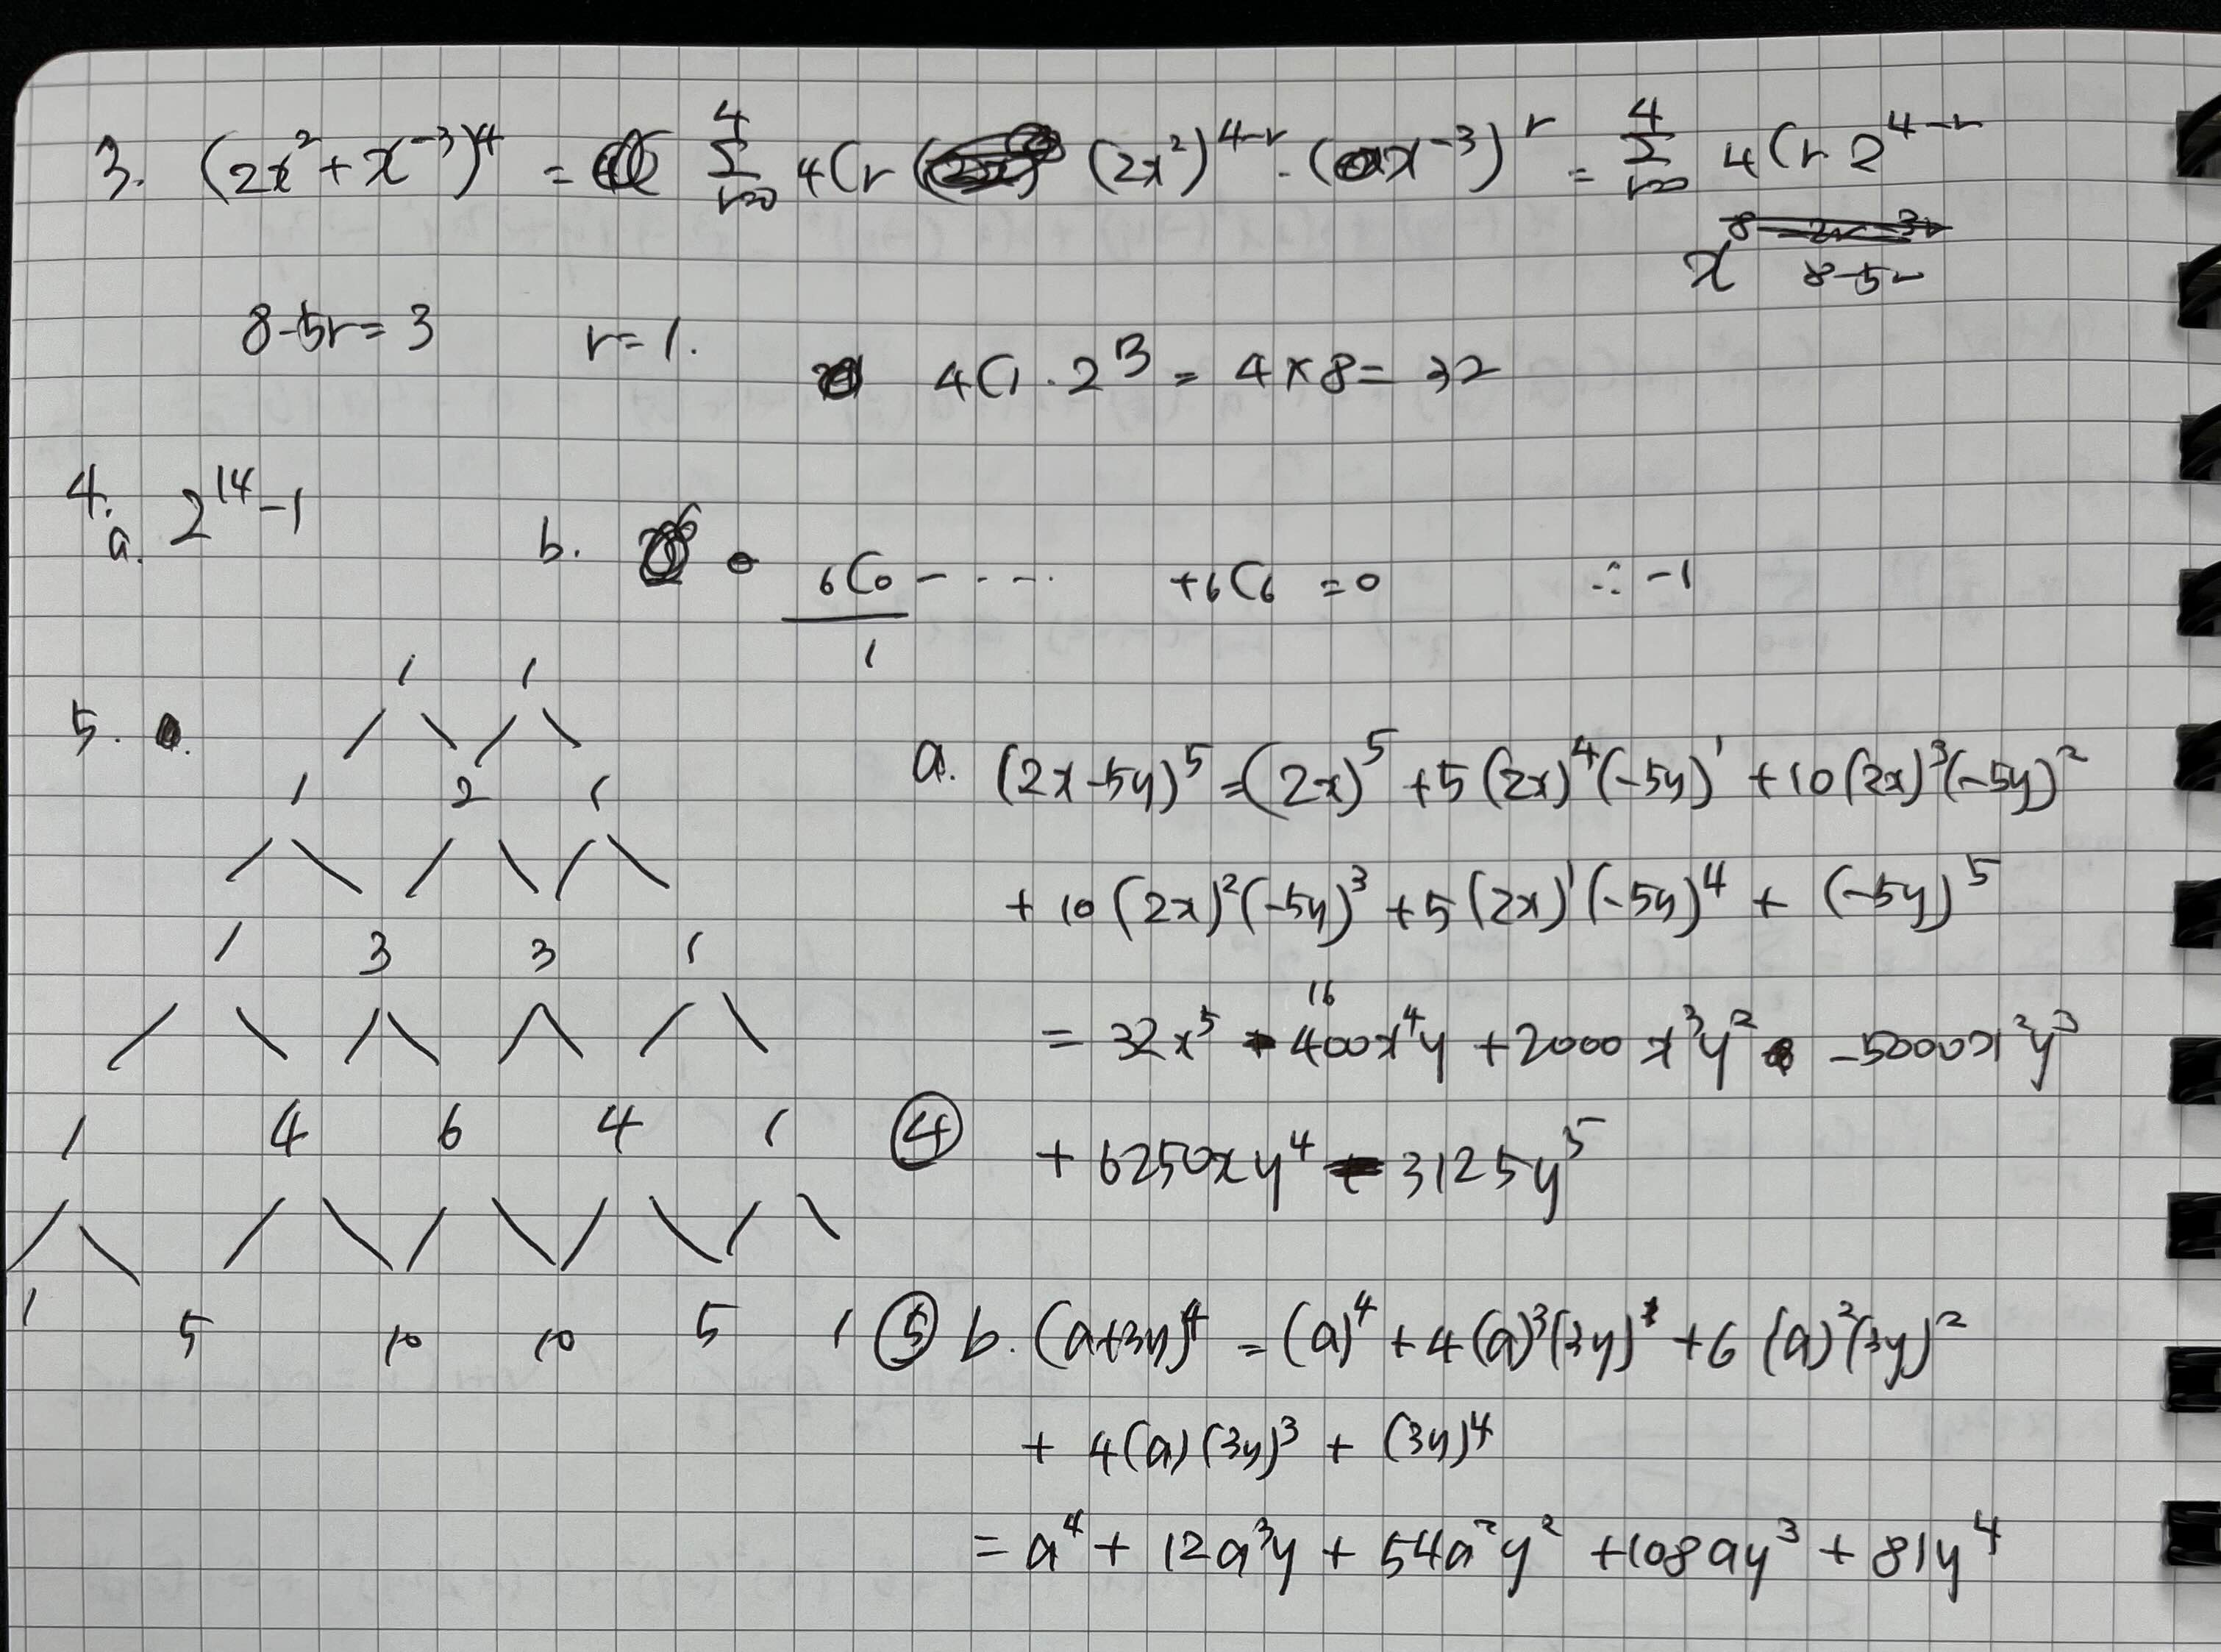 3. (2x²+x⁻³)⁴ = Σ r=0 4 4Cr (2x²)⁴⁻ʳ · (x⁻³)ʳ = Σ r=0 4 4Cr 2⁴⁻ʳ
x⁸⁻⁵ʳ
8-5r=3 r=1. 4C1·2³ = 4×8= 32
4. a. 2¹⁴-1 b. 6C0 - ···· +6C6 =0 ∴ -1
1
1 1
5. a. (2x-5y)⁵=(2x)⁵ +5(2x)⁴(-5y)¹ +10(2x)³(-5y)²
1 2 1
+ 10(2x)²(-5y)³ +5(2x)¹(-5y)⁴ + (-5y)⁵
1 3 3 1
16
= 32x⁵ - 400x⁴y +2000x³y² -5000x²y³
1 4 6 4 1 ④
+ 6250xy⁴ - 3125y⁵
1 5 10 10 5 1 ⑤
b. (a+3y)⁴ = (a)⁴ +4(a)³(3y) +6(a)²(3y)²
+ 4(a)(3y)³ + (3y)⁴
= a⁴ + 12a³y + 54a²y² +108ay³ + 81y⁴